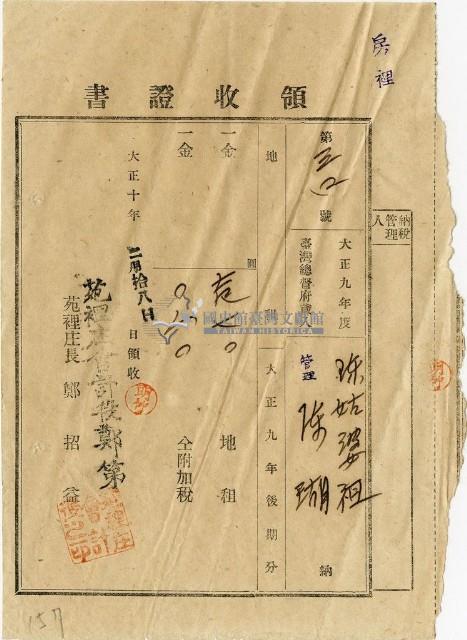 房裡
領收證書
納稅管理人
第三一〇號
大正九年度
臺灣總督府歲入
珠姑婆祖
管理 陳瑚
納
地
租
大正九年後期分
圓
一金
地租
一金
仝附加稅
大正十年
二月拾八日
日領收
苑裡庄會計役鄭第
苑裡庄長 鄭招益
苑裡庄會計役之印
國史館臺灣文獻館
TAIWAN HISTORICA
157